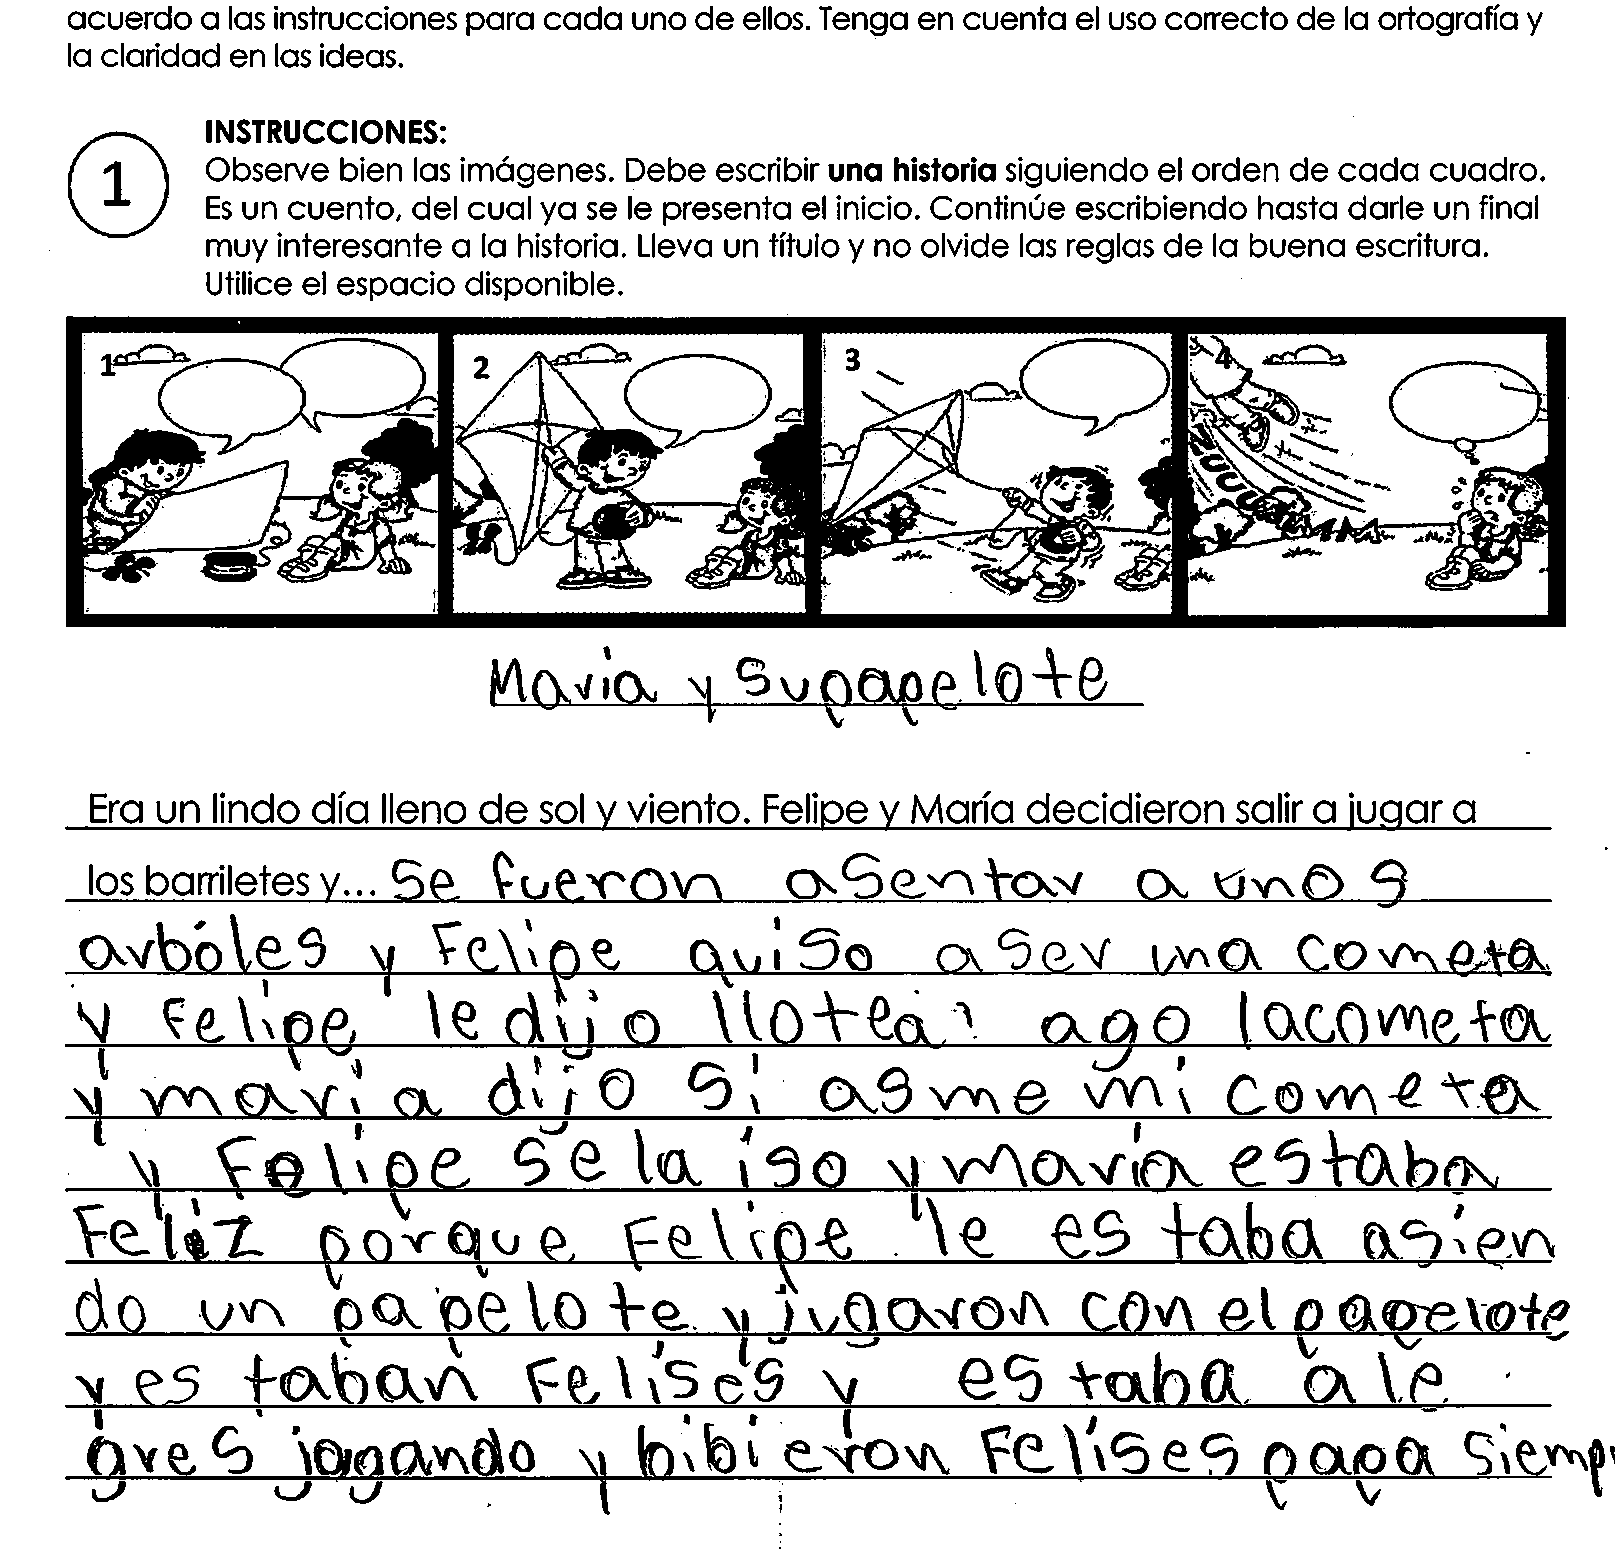 acuerdo a las instrucciones para cada uno de ellos. Tenga en cuenta el uso correcto de la ortografía y
la claridad en las ideas.
1
INSTRUCCIONES:
Observe bien las imágenes. Debe escribir una historia siguiendo el orden de cada cuadro.
Es un cuento, del cual ya se le presenta el inicio. Continúe escribiendo hasta darle un final
muy interesante a la historia. Lleva un título y no olvide las reglas de la buena escritura.
Utilice el espacio disponible.
1 2 3 4
ZUUUUMMM
Maria y su papelote
Era un lindo día lleno de sol y viento. Felipe y María decidieron salir a jugar a
los barriletes y... se fueron asentar a unos
arbóles y Felipe quiso aser una cometa
y Felipe le dijo llotea ago lacometa
y maria dijo si asme mi cometa
y Felipe se la iso y maria estaba
Feliz porque Felipe le estaba asien
do un papelote y jugaron con el papelote
y estaban Felises y estaba ale
gres jagando y bibieron Felises papa siemp